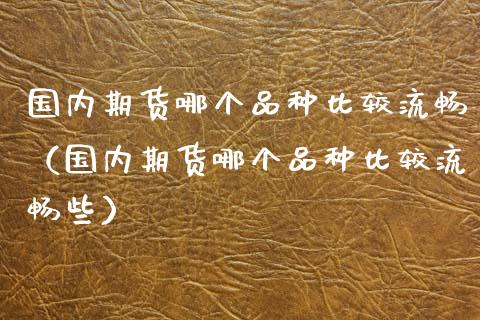 国内期货哪个品种比较流畅
（国内期货哪个品种比较流
畅些）